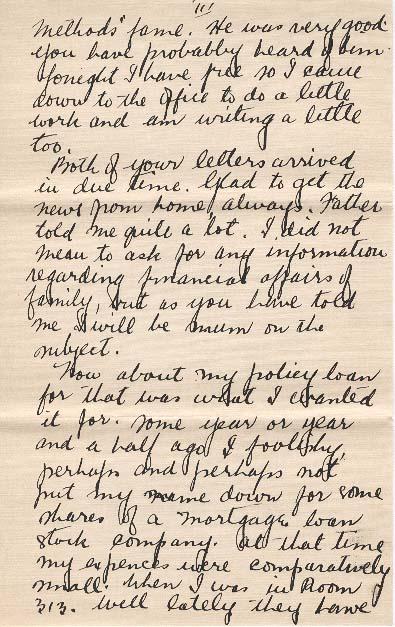 III
Methods' fame. He was very good
you have probabby heard of him.
Tonight I have free so I came
down to the office to do a little
work and am writing a little
too.
Both of your letters arrived
in due time. Glad to get the
news from home, always. Father
told me quite a lot. I did not
mean to ask for any information
regarding financial affairs of
family, but as you have told
me I will be mum on the
subject.
Now about my policy loan
for that was what I wanted
it for. Some year or year
and a half ago I foolishy,
perhaps and perhaps not
put my name down for some
shares of a mortgage loan
stock company. At that time
my expences were comparatively
small. When I was in Room
313. Well lately they have